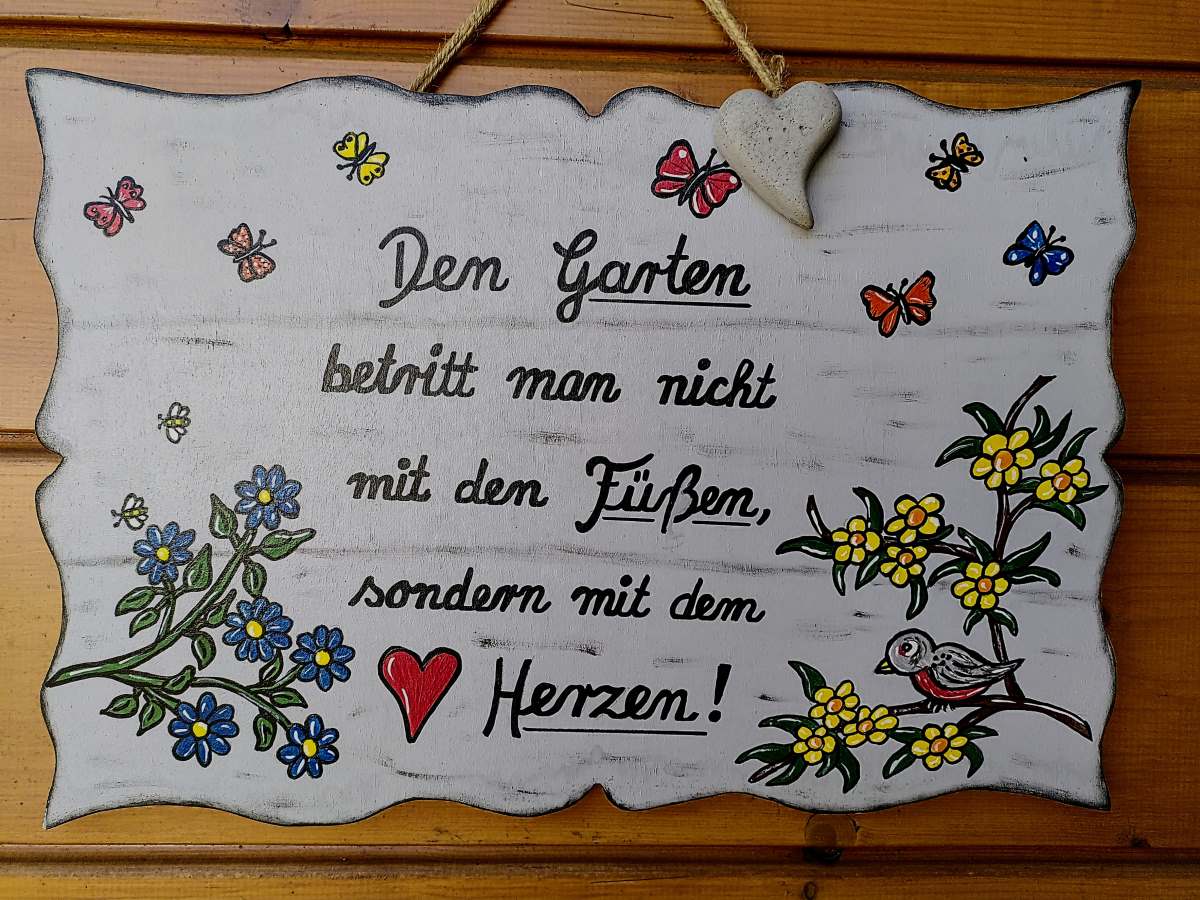 Den Garten
betritt man nicht
mit den Füßen,
sondern mit dem
Herzen!